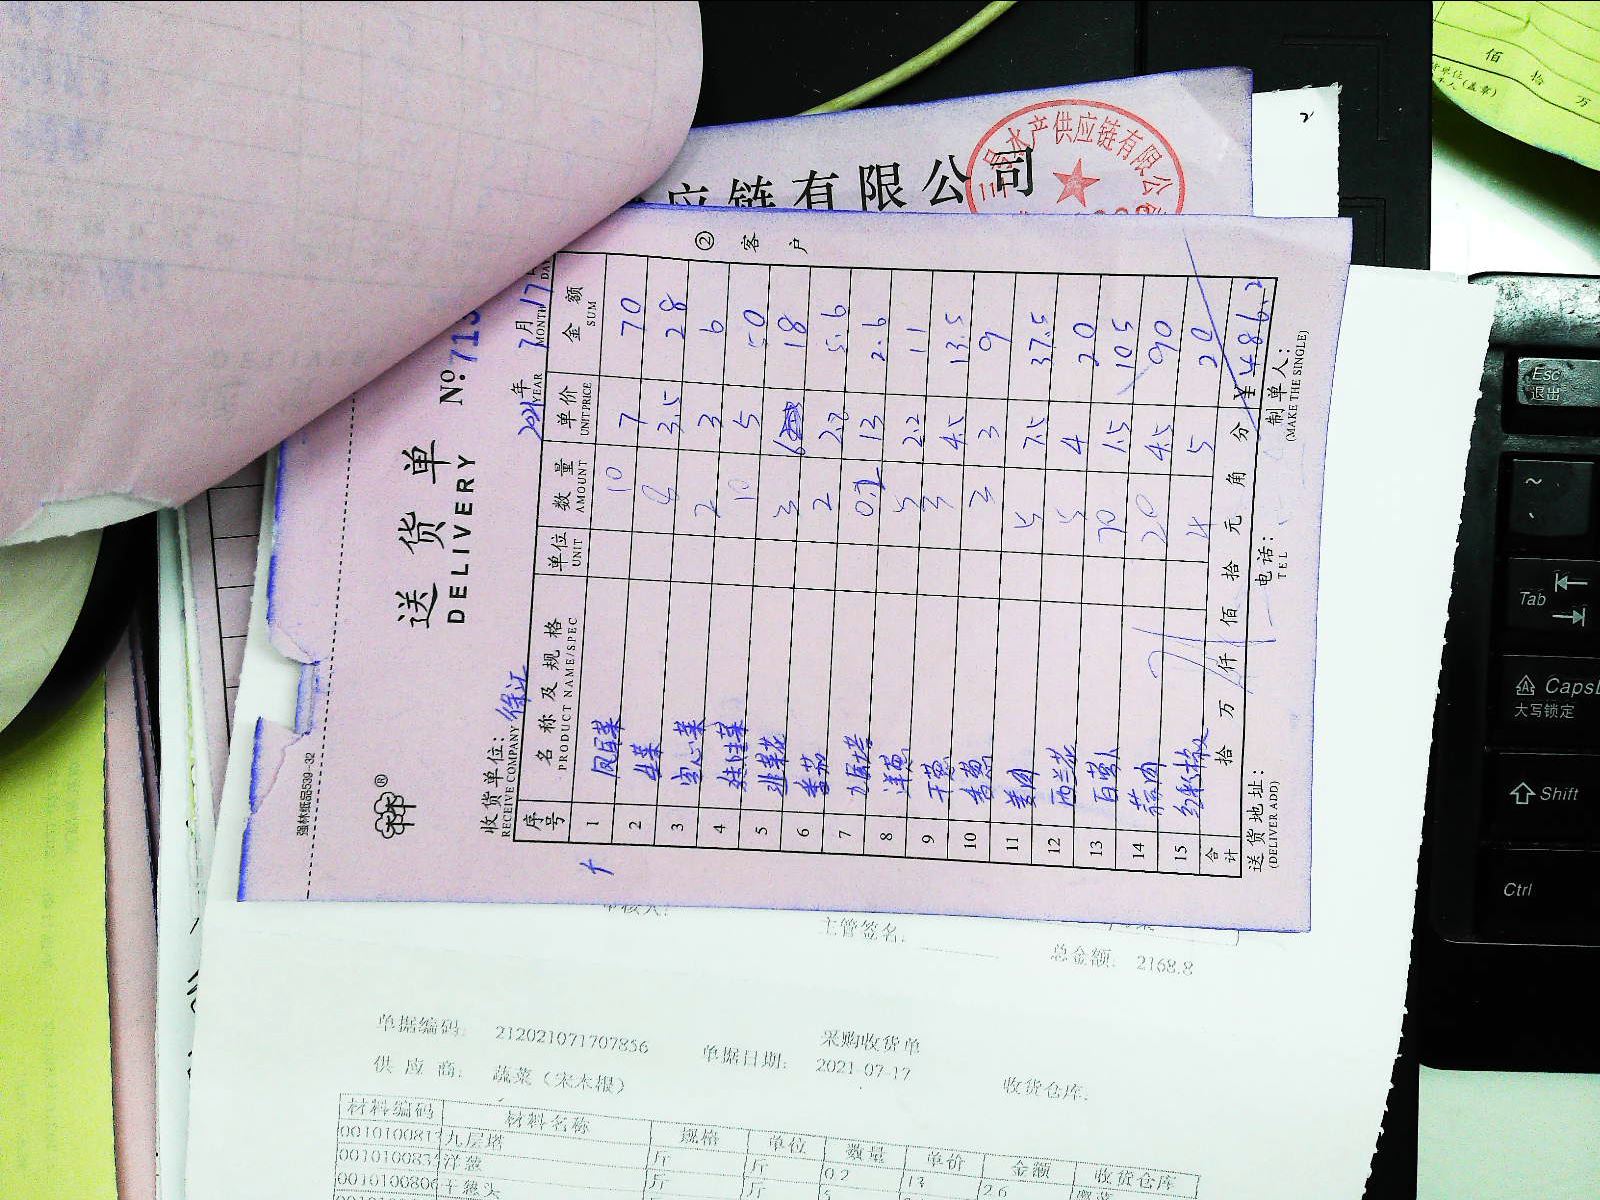 佰 拾 万
应链有限公司
三 水产供应链有限公
② 客 户
强林纸品539-32
送货单
DELIVERY
No.713
收货单位：徐汇
RECEIVE COMPANY
2021年 7月 17
YEAR MONTH DA
序号 名称及规格 单位 数量 单价 金额
PRODUCT NAME/SPEC UNIT AMOUNT UNIT PRICE SUM
1 凤尾菜 10 7 70
2 生菜 8 3.5 28
3 空心菜 2 3 6
4 娃娃菜 10 5 50
5 韭菜花 3 6 18
6 番茄 2 2.8 5.6
7 九层塔 0.2 13 2.6
8 洋葱 5 2.2 11
9 干葱 3 4.5 13.5
10 香葱 3 3 9
11 姜肉 5 7.5 37.5
12 西兰花 5 4 20
13 白萝卜 70 1.5 105
14 蒜肉 20 4.5 90
15 4 5 20
合计 拾 万 仟 佰 拾 元 角 分 ¥486.2
送货地址： 电话： 制单人：
(DELIVER ADD) TEL (MAKE THE SINGLE)
主管签名.
总金额: 2168.8
采购收货单
单据编码: 212021071707856 单据日期: 2021-07-17 收货仓库.
供 应 商: 蔬菜（宋木根）
材料编码 材料名称 规格 单位 数量 单价 金额 收货仓库
001010081 九层塔 斤 斤 0.2 13 2.6
001010083 洋葱 斤 斤 5
001010080 干葱头
Esc
退出
~
Tab
Caps
大写锁定
Shift
Ctrl